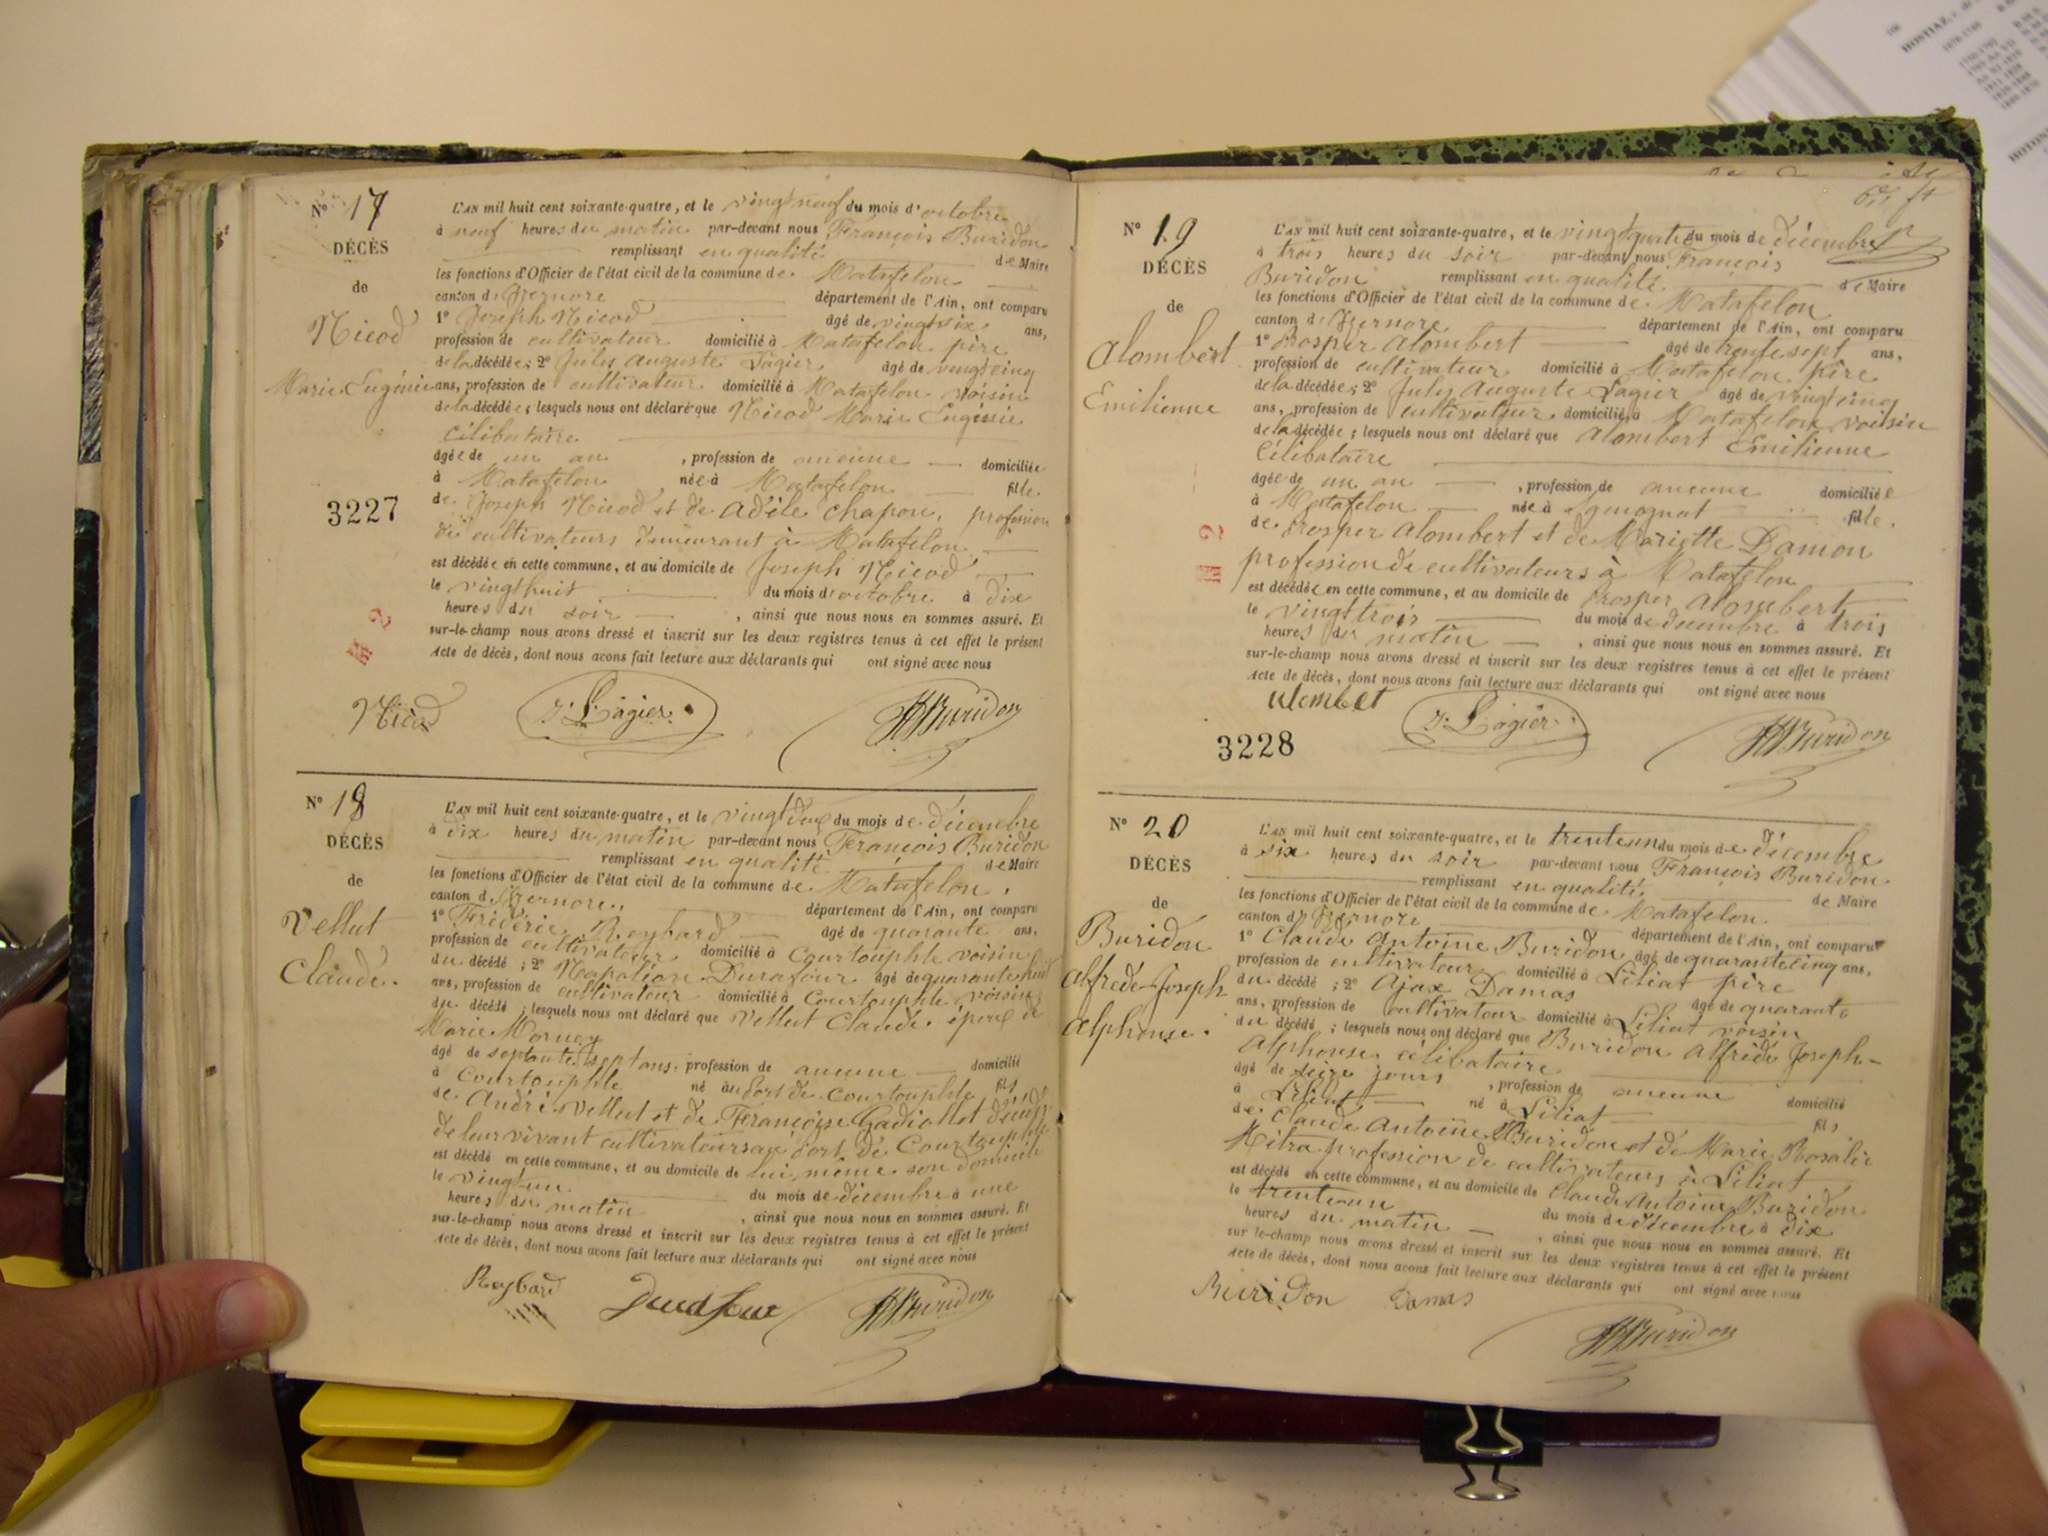 N° 17
DÉCÈS
de
Nicod
Marie Eugénie
3227
L'AN mil huit cent soixante-quatre, et le vingt neuf du mois d'octobre
à neuf heures du matin par-devant nous François Buridon
remplissant en qualité de Maire
les fonctions d'Officier de l'état civil de la commune de Matafelon
canton d'Izernore département de l'Ain, ont comparu
1° Joseph Nicod âgé de vingt six ans,
profession de cultivateur domicilié à Matafelon père
de la décédée; 2° Jules Auguste Lagier âgé de vingt cinq
ans, profession de cultivateur domicilié à Matafelon voisin
de la décédée; lesquels nous ont déclaré que Nicod Marie Eugénie
célibataire
âgée de un an, profession de aucune domiciliée
à Matafelon née à Matafelon fille
de Joseph Nicod et de Adèle Chapon, profession
de cultivateurs demeurant à Matafelon
est décédée en cette commune, et au domicile de Joseph Nicod
le vingt huit du mois d'octobre à dix
heures du soir, ainsi que nous nous en sommes assuré. Et
sur-le-champ nous avons dressé et inscrit sur les deux registres tenus à cet effet le présent
acte de décès, dont nous avons fait lecture aux déclarants qui ont signé avec nous
Nicod J. Lagier Buridon
N° 18
DÉCÈS
de
Vellut
Claude.
L'AN mil huit cent soixante-quatre, et le vingt deux du mois de décembre
à dix heures du matin par-devant nous François Buridon
remplissant en qualité de Maire
les fonctions d'Officier de l'état civil de la commune de Matafelon.
canton d'Izernore, département de l'Ain, ont comparu
1° Frédéric Reybard âgé de quarante ans,
profession de cultivateur domicilié à Courtouphle voisin
du décédé; 2° Napoléon Durafour âgé de quarante huit
ans, profession de cultivateur domicilié à Courtouphle voisin
du décédé; lesquels nous ont déclaré que Vellut Claude époux de
Marie Mornay
âgé de septante sept ans, profession de aucune domicilié
à Courtouphle né au Port de Courtouphle fils
de André Vellut et de Françoise Gadiollet
de leur vivant cultivateurs au Port de Courtouphle
est décédé en cette commune, et au domicile de lui même son domicile
le vingt un du mois de décembre à une
heures du matin, ainsi que nous nous en sommes assuré. Et
sur-le-champ nous avons dressé et inscrit sur les deux registres tenus à cet effet le présent
acte de décès, dont nous avons fait lecture aux déclarants qui ont signé avec nous
Reybard Durafour Buridon
N° 19
DÉCÈS
de
Alombert
Emilienne
L'AN mil huit cent soixante-quatre, et le vingt quatre du mois de décembre
à trois heures du soir par-devant nous François
Buridon remplissant en qualité de Maire
les fonctions d'Officier de l'état civil de la commune de Matafelon
canton d'Izernore département de l'Ain, ont comparu
1° Prosper Alombert âgé de trente sept ans,
profession de cultivateur domicilié à Matafelon père
de la décédée; 2° Jules Auguste Lagier âgé de vingt cinq
ans, profession de cultivateur domicilié à Matafelon voisin
de la décédée; lesquels nous ont déclaré que Alombert Emilienne
célibataire
âgée de un an, profession de aucune domiciliée
à Matafelon née à fille
de Prosper Alombert et de Mariette Damon
profession de cultivateurs à Matafelon
est décédée en cette commune, et au domicile de Prosper Alombert
le vingt trois du mois de décembre à trois
heures du matin, ainsi que nous nous en sommes assuré. Et
sur-le-champ nous avons dressé et inscrit sur les deux registres tenus à cet effet le présent
acte de décès, dont nous avons fait lecture aux déclarants qui ont signé avec nous
J. Lagier Buridon
3228
N° 20
DÉCÈS
de
Buridon
Alfrede Joseph
Alphonse.
L'AN mil huit cent soixante-quatre, et le trente un du mois de décembre
à six heures du soir par-devant nous François Buridon
remplissant en qualité de Maire
les fonctions d'Officier de l'état civil de la commune de Matafelon.
canton d'Izernore département de l'Ain, ont comparu
1° Claude Antoine Buridon âgé de quarante cinq ans,
profession de cultivateur domicilié à Siliat père
du décédé; 2° Ajax Damas âgé de quarante
ans, profession de cultivateur domicilié à Siliat voisin
du décédé; lesquels nous ont déclaré que Buridon Alfrede Joseph-
Alphonse célibataire
âgé de seize jours, profession de aucune domicilié
à Siliat né à Siliat fils
de Claude Antoine Buridon et de Marie Rosalie
Métra profession de cultivateurs à Siliat
est décédé en cette commune, et au domicile de Claude Antoine Buridon
le trente un du mois de décembre à dix
heures du matin, ainsi que nous nous en sommes assuré. Et
sur-le-champ nous avons dressé et inscrit sur les deux registres tenus à cet effet le présent
acte de décès, dont nous avons fait lecture aux déclarants qui ont signé avec nous
Buridon Damas Buridon